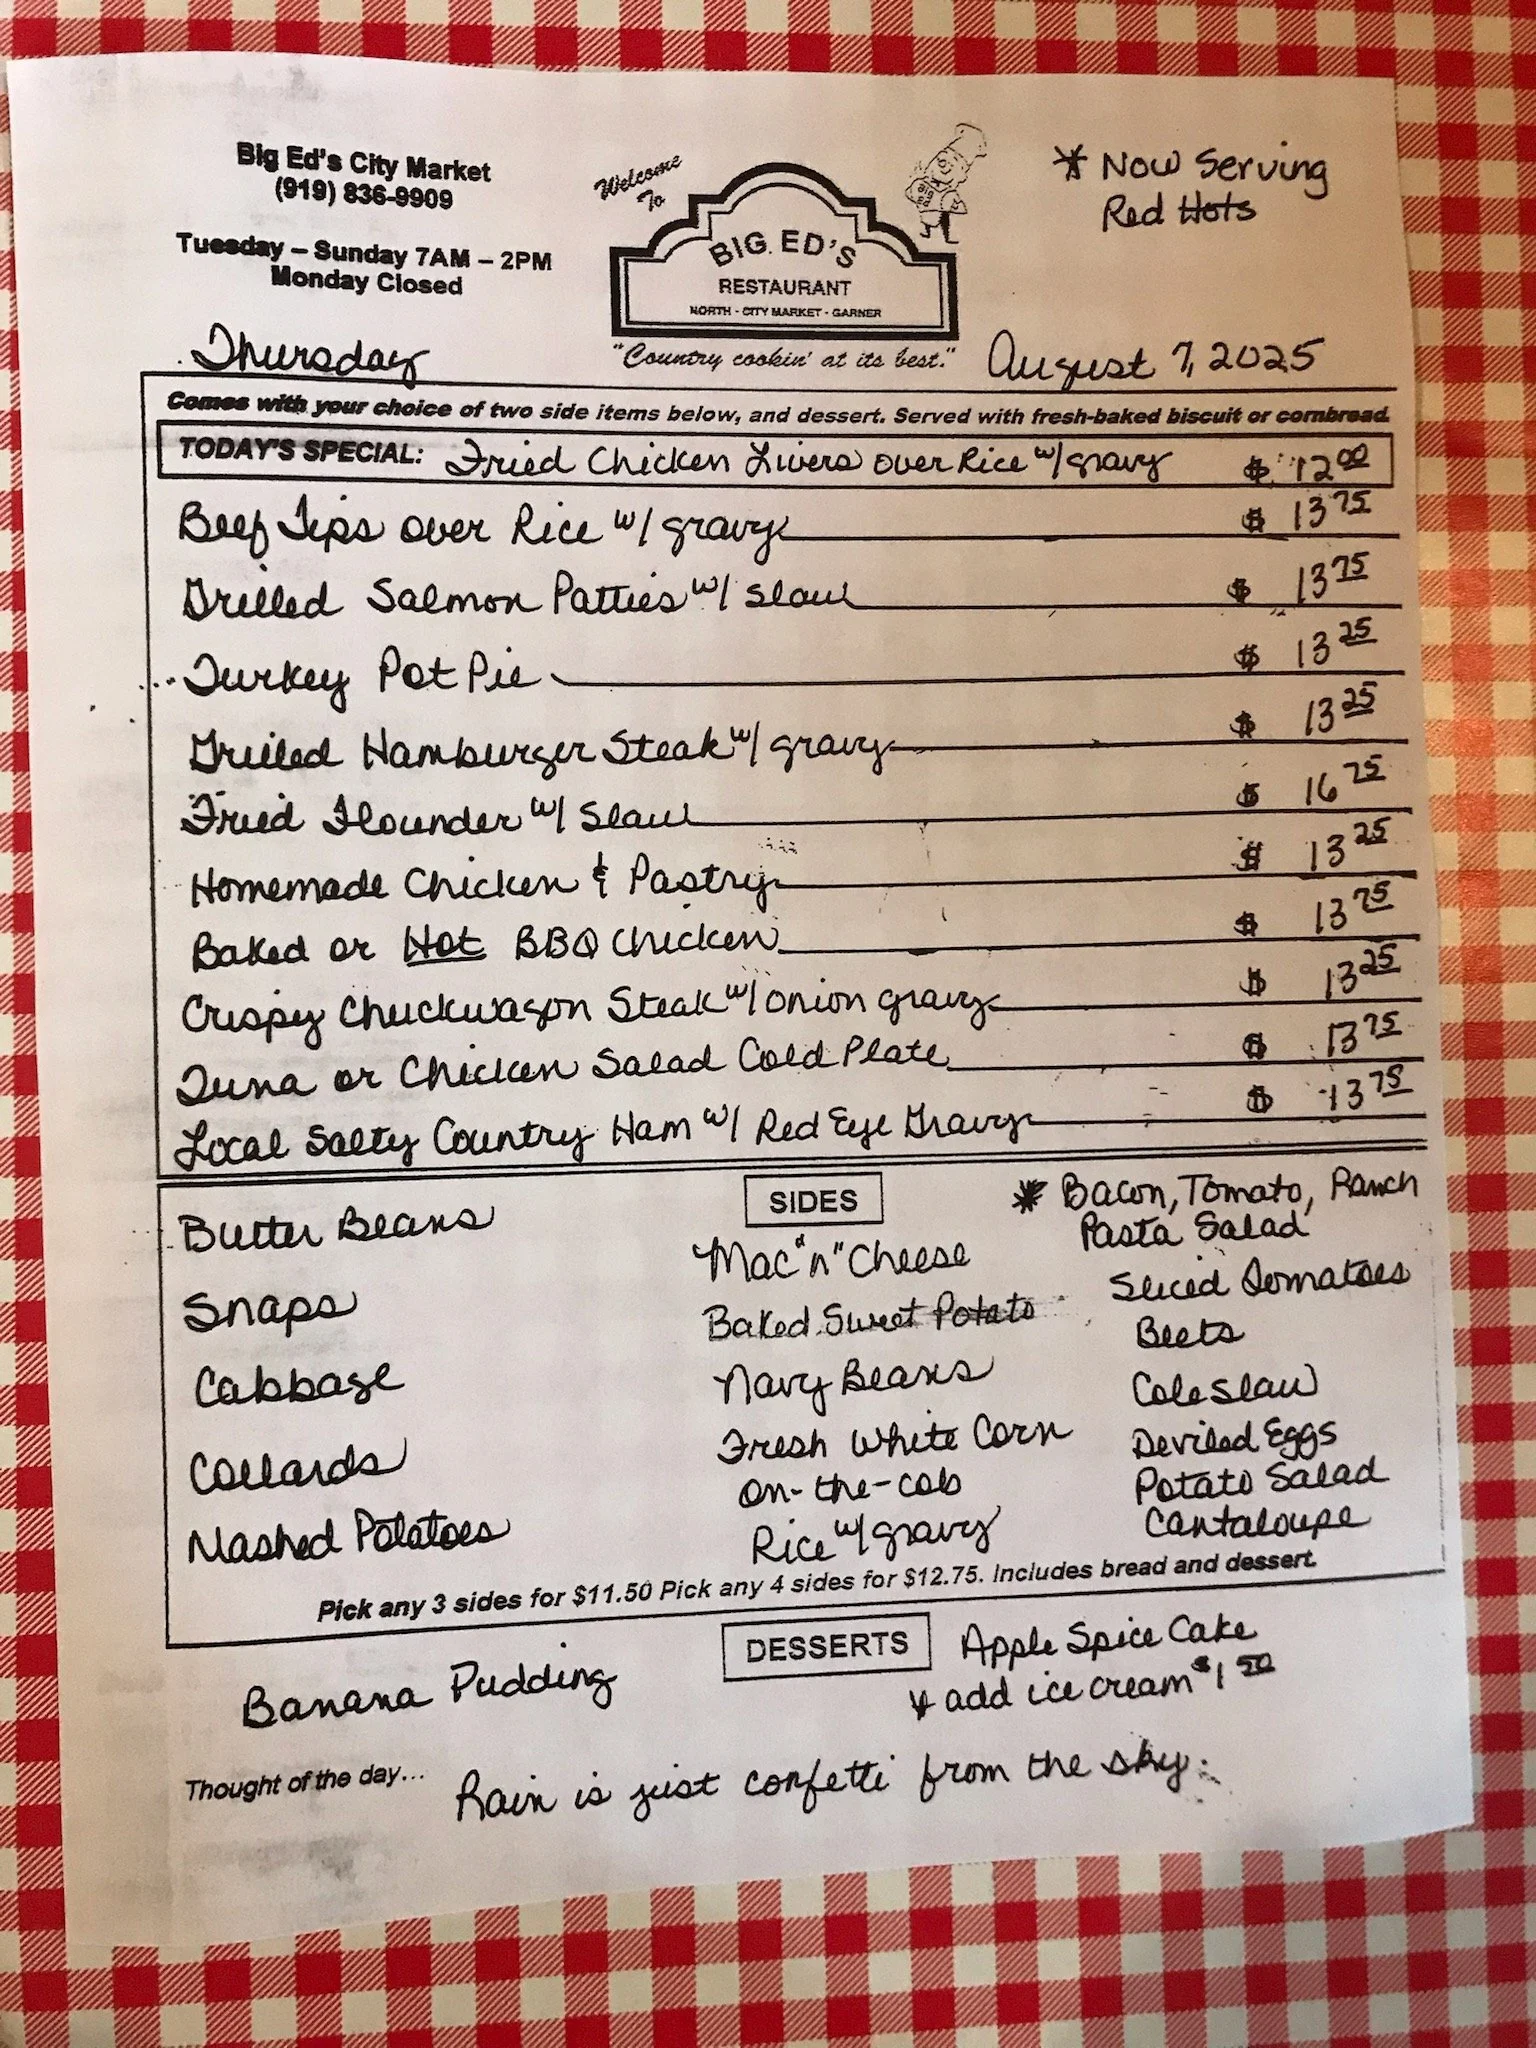 Big Ed's City Market
(919) 836-9909
Tuesday – Sunday 7AM – 2PM
Monday Closed
Welcome
To
BIG ED'S
RESTAURANT
NORTH - CITY MARKET - GARNER
"Country cookin' at its best."
* Now Serving
Red Hots
Thursday
August 7, 2025
Comes with your choice of two side items below, and dessert. Served with fresh-baked biscuit or cornbread.
TODAY'S SPECIAL: Fried Chicken Livers over Rice w/ gravy $ 12.00
Beef Tips over Rice w/ gravy $ 13.75
Grilled Salmon Patties w/ slaw $ 13.75
Turkey Pot Pie $ 13.25
Grilled Hamburger Steak w/ gravy $ 13.25
Fried Flounder w/ Slaw $ 16.75
Homemade Chicken & Pastry $ 13.25
Baked or Hot BBQ Chicken $ 13.75
Crispy Chuckwagon Steak w/ onion gravy $ 13.25
Tuna or Chicken Salad Cold Plate $ 13.75
Local Salty Country Ham w/ Red Eye Gravy $ 13.75
SIDES
Butter Beans
Snaps
Cabbage
Collards
Mashed Potatoes
Mac "n" Cheese
Baked Sweet Potato
Navy Beans
Fresh White Corn
on-the-cob
Rice w/ gravy
* Bacon, Tomato, Ranch
Pasta Salad
Sliced Tomatoes
Beets
Cole Slaw
Deviled Eggs
Potato Salad
Cantaloupe
Pick any 3 sides for $11.50 Pick any 4 sides for $12.75. Includes bread and dessert.
DESSERTS
Banana Pudding
Apple Spice Cake
add ice cream $1.50
Thought of the day... Rain is just confetti from the sky.